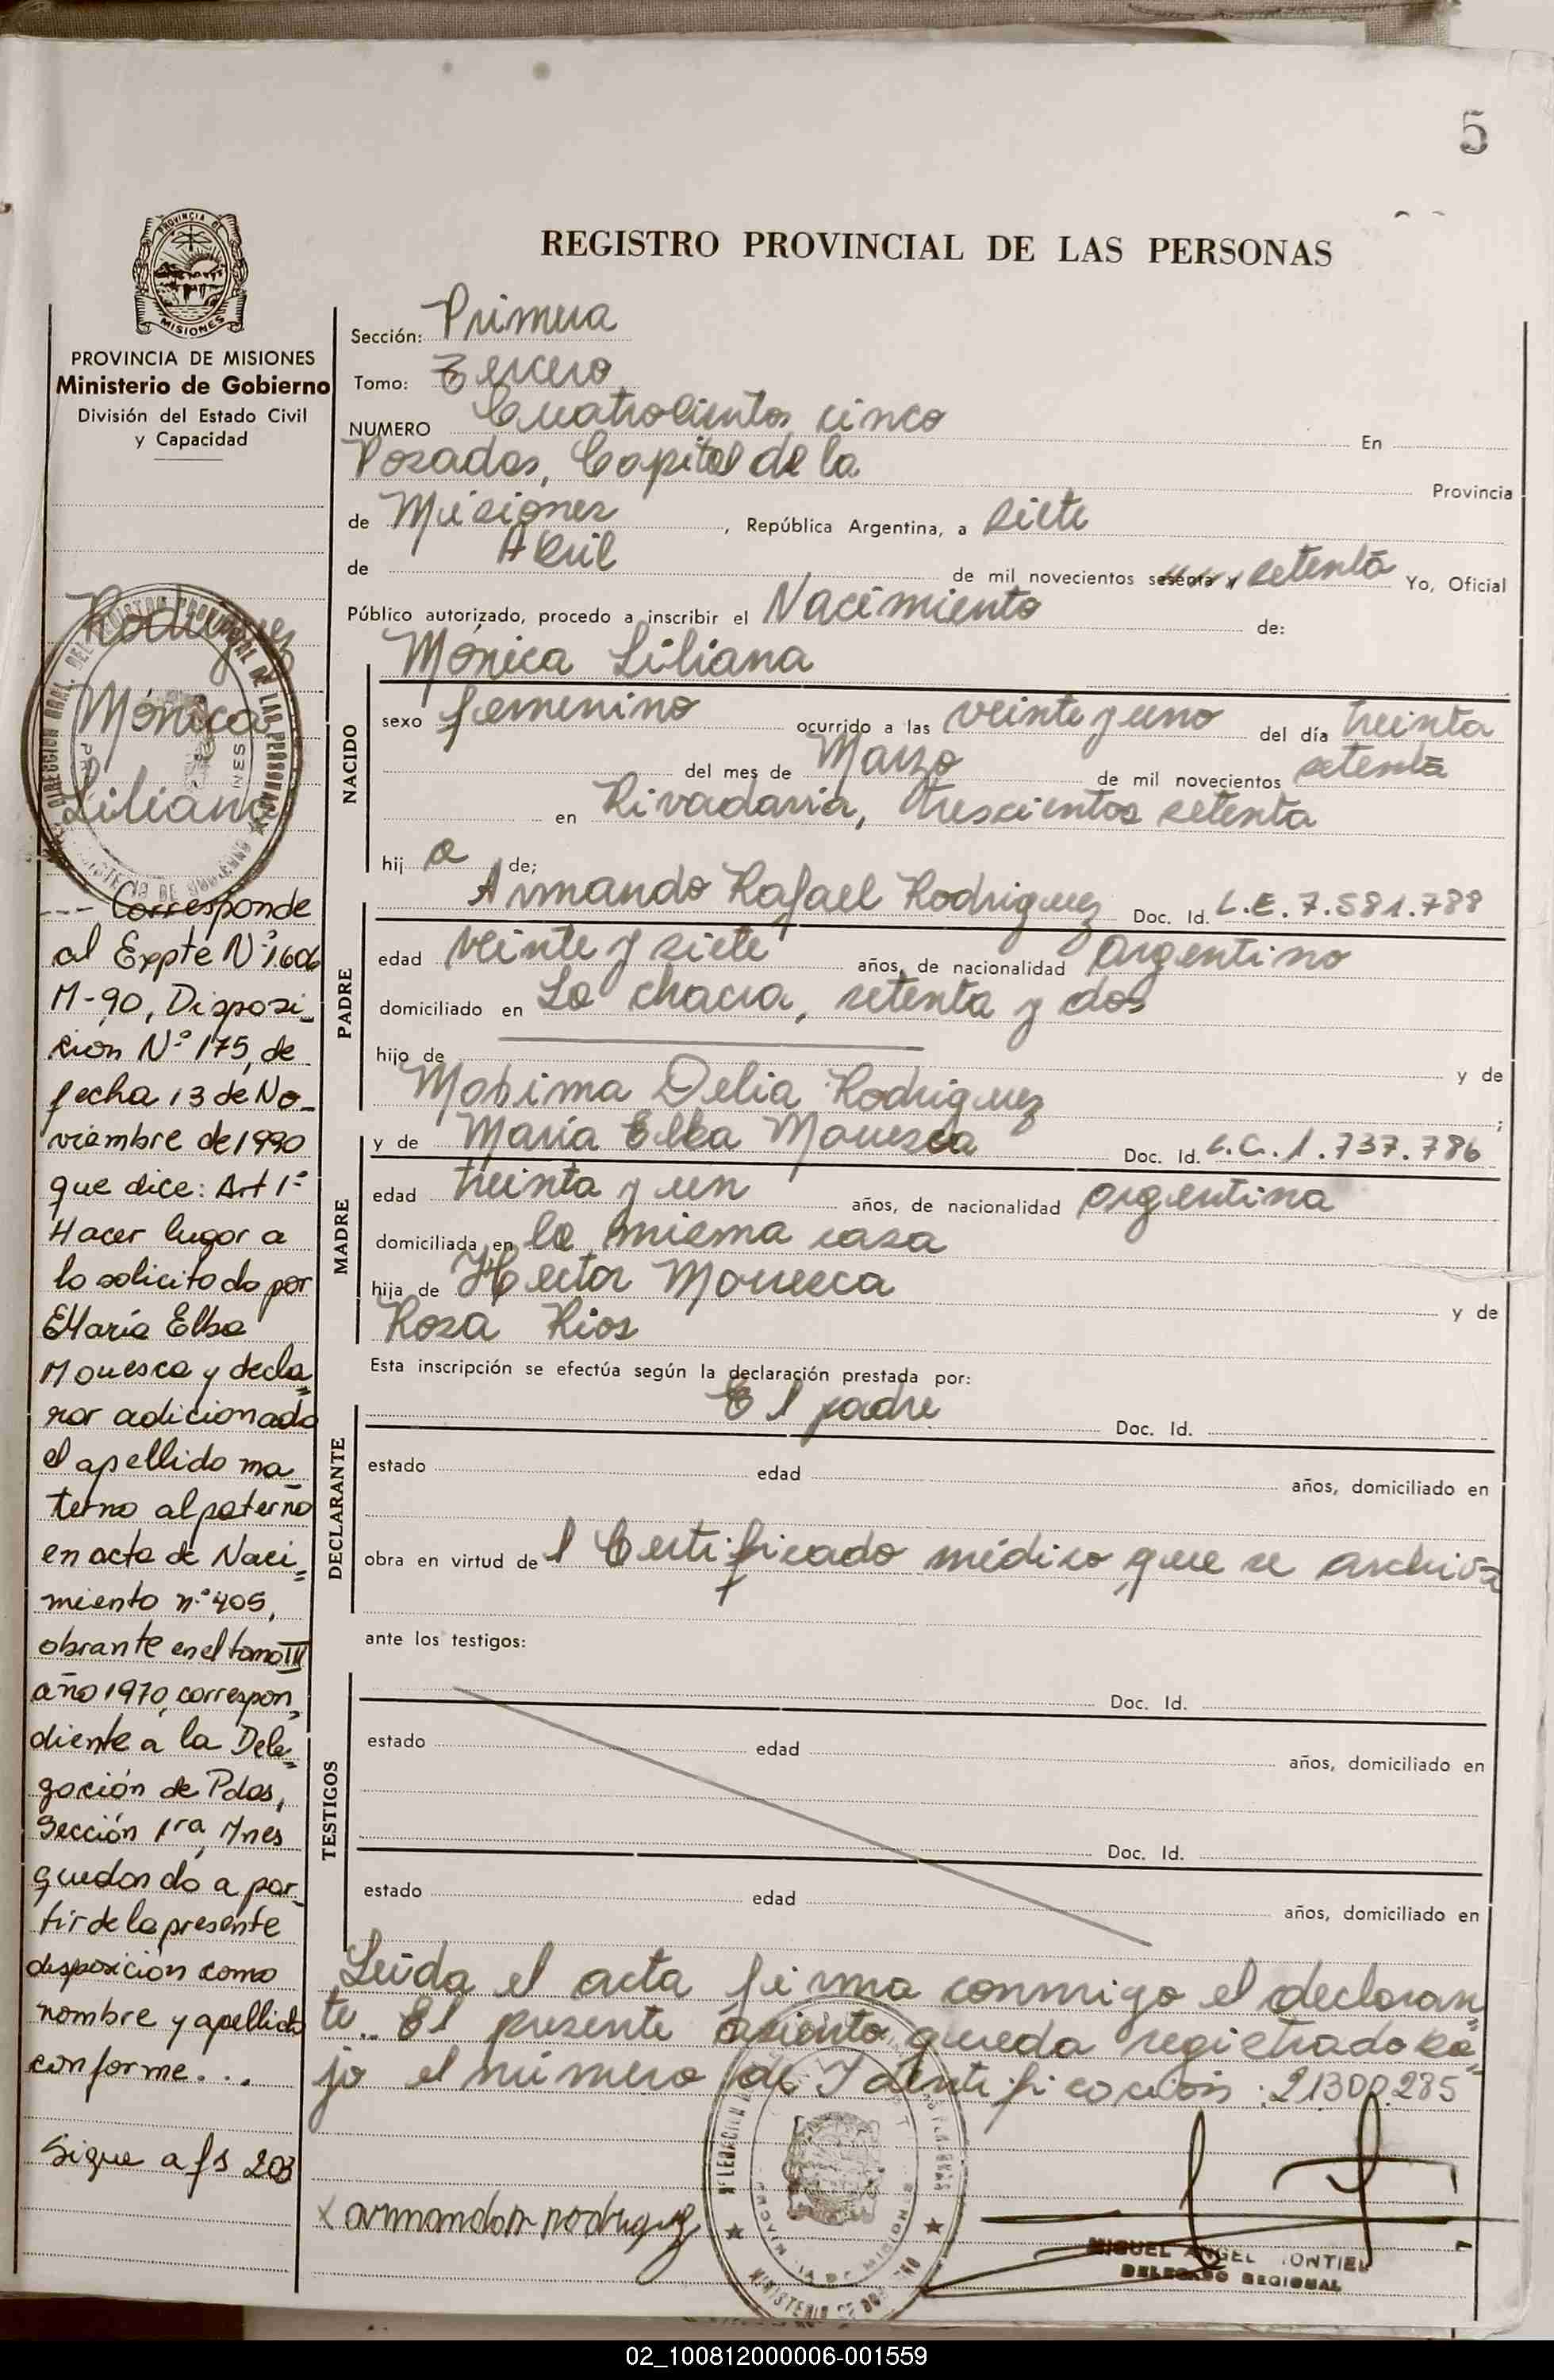 5
REGISTRO PROVINCIAL DE LAS PERSONAS
PROVINCIA DE MISIONES
Ministerio de Gobierno
División del Estado Civil
y Capacidad
Rodriguez
Mónica
Liliana
--- Corresponde
al Expte Nº 1.606
M-90, Disposi-
ción Nº 175, de
fecha 13 de No-
viembre de 1990
que dice: Art 1º
Hacer lugar a
lo solicitado por
María Elba
Mouesca y decla=
rar adicionado
el apellido ma-
terno al paterno
en acta de Naci-
miento nº 405,
obrante en el tomo III
año 1970, correspon=
diente a la Dele=
gación de Pdas,
Sección 1ra, Mnes
quedando a par-
tir de la presente
disposición como
nombre y apellido
conforme...
Sigue a fs 203
Sección: Primera
Tomo: Tercero
NUMERO Cuatrocientos cinco En
Posadas, Capital de la Provincia
de Misiones, República Argentina, a siete
de Abril de mil novecientos sesenta y setenta Yo, Oficial
Público autorizado, procedo a inscribir el Nacimiento de:
Mónica Liliana
NACIDO
sexo femenino ocurrido a las veinte y uno del día treinta
del mes de Marzo de mil novecientos setenta
en Rivadavia, trescientos setenta
hij a de;
PADRE
Armando Rafael Rodriguez Doc. Id. L.E. 7.581.788
edad veinte y siete años, de nacionalidad argentino
domiciliado en La chacra, setenta y dos
hijo de y de
Delia Rodriguez ;
MADRE
y de María Elba Mouesca Doc. Id. L.C. 1.737.786
edad treinta y un años, de nacionalidad argentina
domiciliada en la misma casa
hija de Hector Mouesca y de
Rosa Rios
Esta inscripción se efectúa según la declaración prestada por:
DECLARANTE
El padre Doc. Id.
estado edad años, domiciliado en
obra en virtud de l Certificado médico que se archiva
ante los testigos:
TESTIGOS
Doc. Id.
estado edad años, domiciliado en
Doc. Id.
estado edad años, domiciliado en
Leída el acta firma conmigo el declaran
te.. El presente asiento queda registrado ba=
jo el número de Identificación: 21300.285
x armando r rodriguez
MIGUEL ANGEL MONTIEL
DELEGADO REGIONAL
02_100812000006-001559